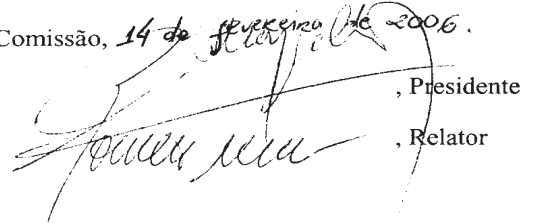 Comissão, 14 de fevereiro de 2006.
, Presidente
, Relator